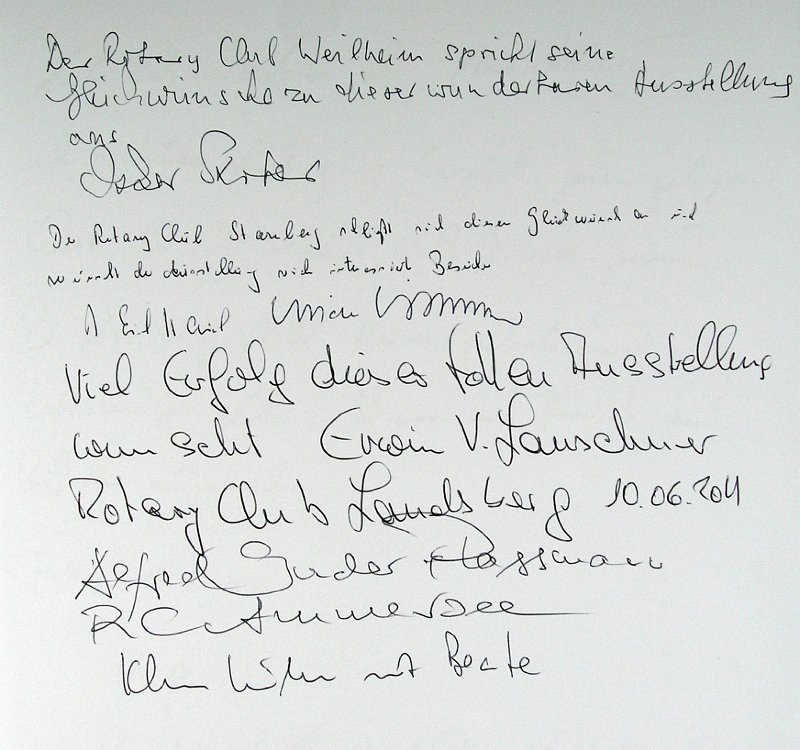 Der Rotary Club Weilheim spricht seine
Glückwünsche zu dieser wunderbaren Ausstellung
aus
Der Rotary Club Starnberg schließt sich diesen Glückwünschen an und
wünscht der Ausstellung viele interessierte Besucher
Viel Erfolg dieser tollen Ausstellung
wünscht Erwin V. Lauschner
Rotary Club Landsberg 10.06.2011
Alfred Ginder
RC Ammersee
mit Beate